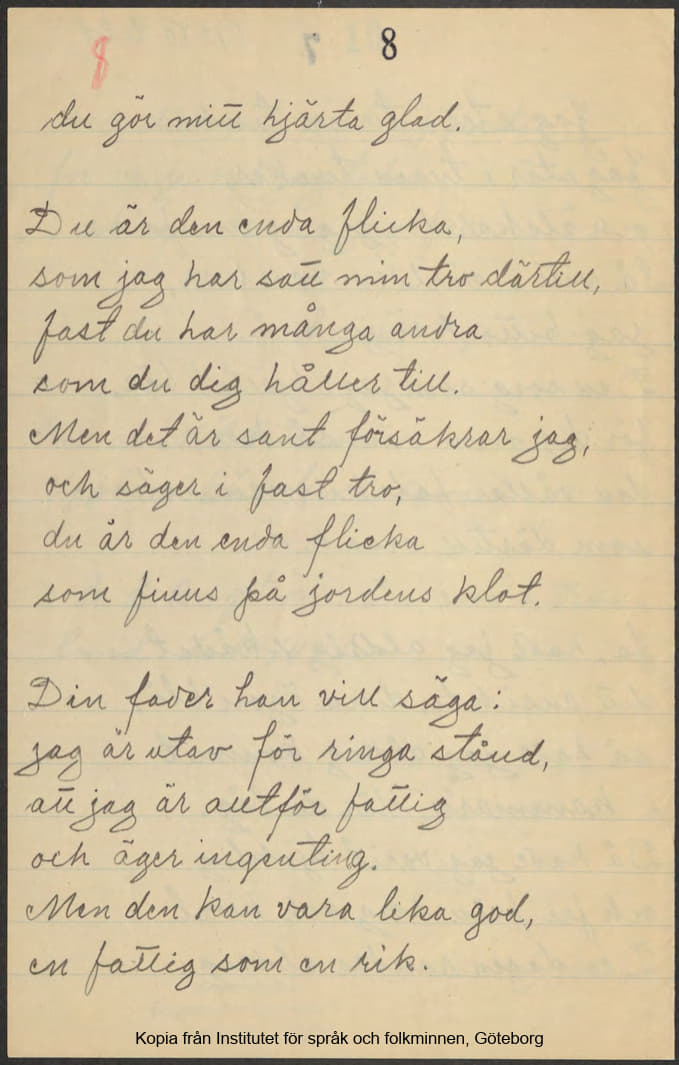 8 7 8
du gör mitt hjärta glad.
Du är den enda flicka,
som jag har satt min tro därtill,
fast du har många andra
som du dig håller till.
Men det är sant försäkrar jag,
och säger i fast tro,
du är den enda flicka
som finns på jordens klot.
Din fader han vill säga:
jag är utav för ringa stånd,
att jag är alltför fattig
och äger ingenting.
Men den kan vara lika god,
en fattig som en rik.
Kopia från Institutet för språk och folkminnen, Göteborg